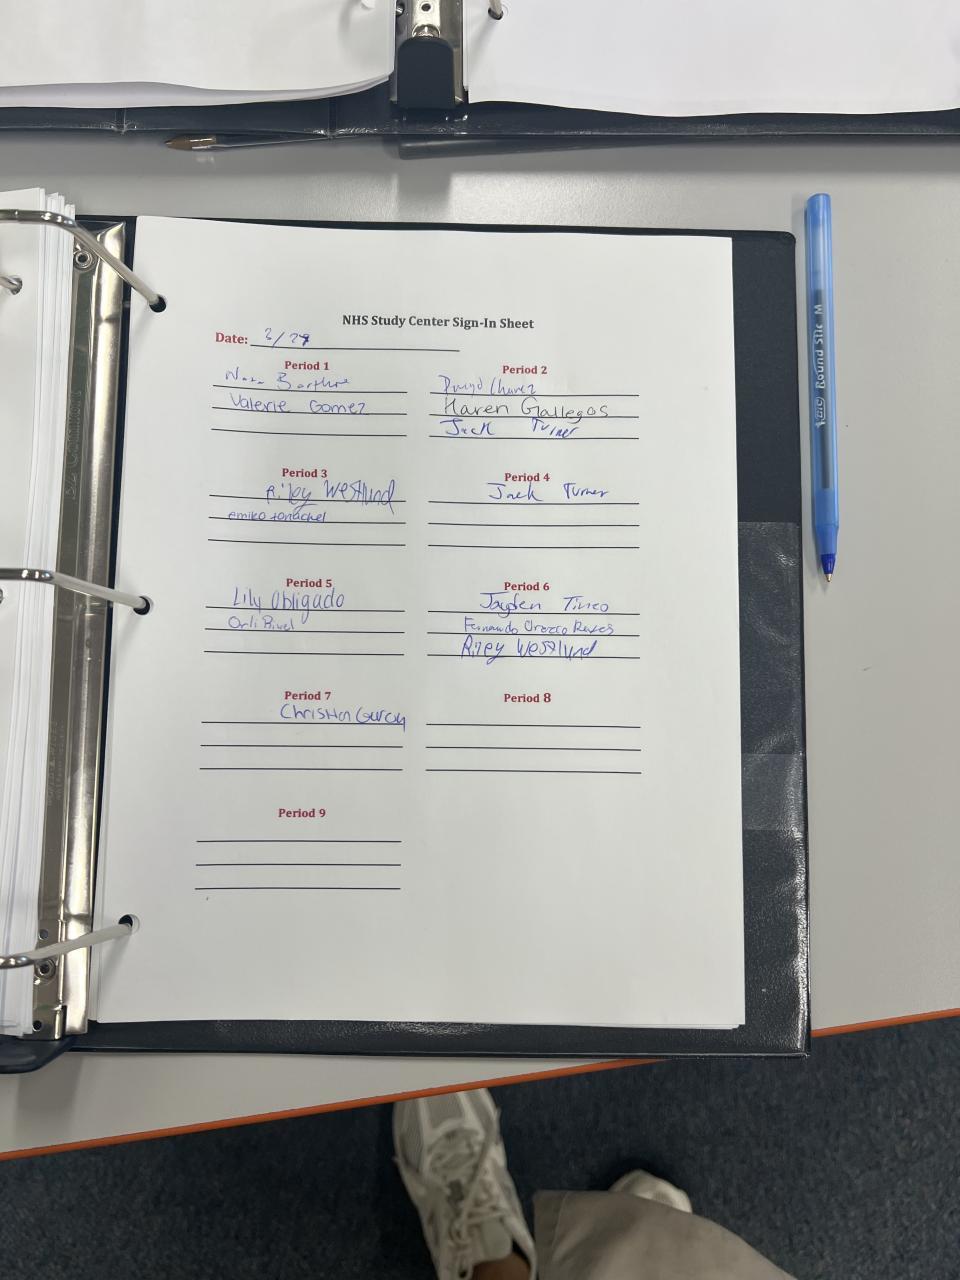 NHS Study Center Sign-In Sheet
Date: 3/27
Period 1
Valerie Gomez
Period 2
David Chavez
Karen Gallegos
Jack Turner
Period 3
Riley Westlund
emiko
Period 4
Jack Turner
Period 5
Lily Obligado
Orli
Period 6
Jayden Tineo
Fernando Orozco Reyes
Riley Westlund
Period 7
Christian Garcia
Period 8
Period 9
BIC Round Stic M